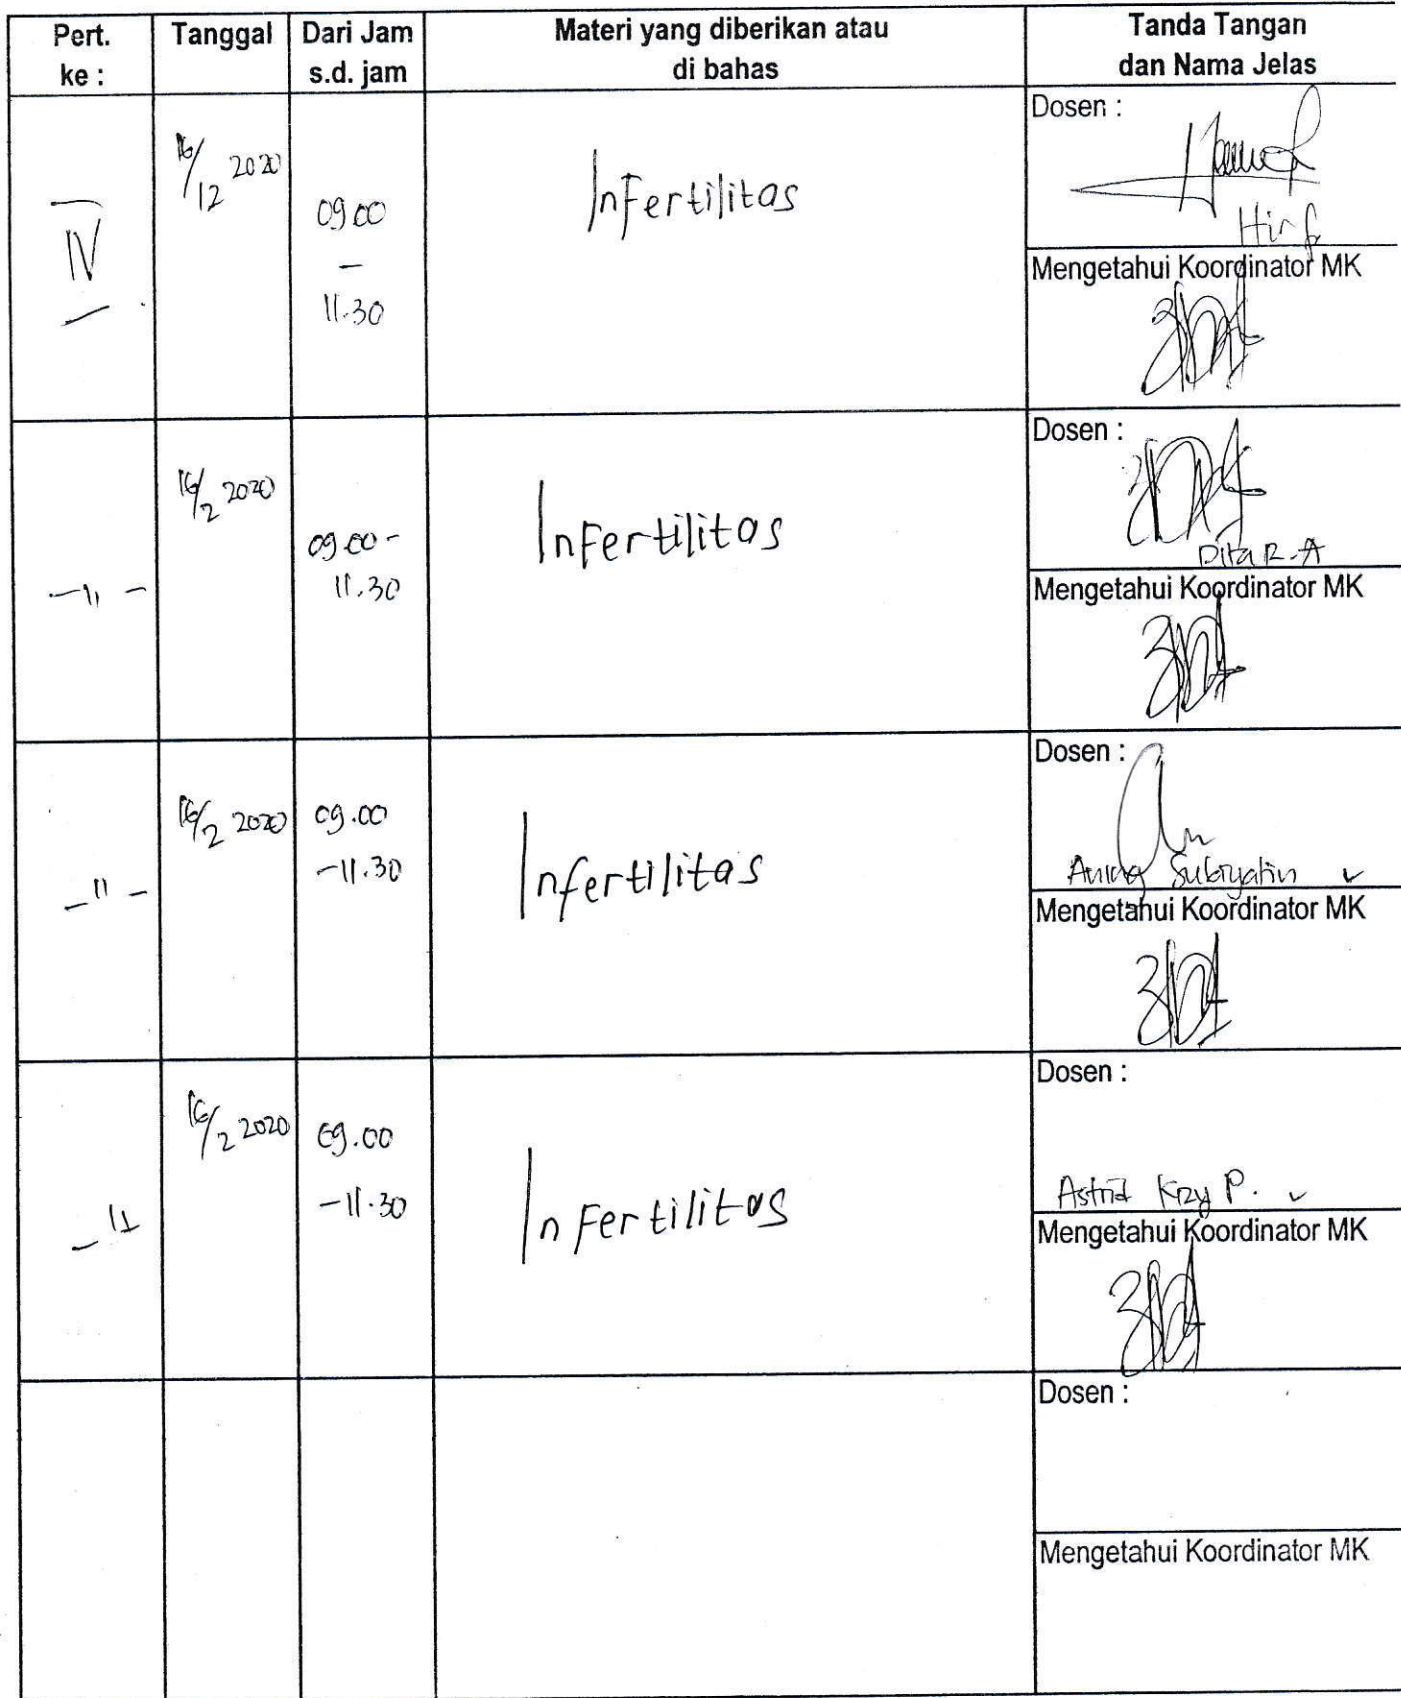 Pert. ke :
Tanggal
Dari Jam s.d. jam
Materi yang diberikan atau di bahas
Tanda Tangan dan Nama Jelas
IV
16/12 2020
09.00
–
11.30
Infertilitas
Dosen :
Mengetahui Koordinator MK
-11-
16/2 2020
09.00 -
11.30
Infertilitas
Dosen :
Dita R.A
Mengetahui Koordinator MK
-11-
16/2 2020
09.00
-11.30
Infertilitas
Dosen :
Mengetahui Koordinator MK
-11
16/2 2020
09.00
-11.30
Infertilitas
Dosen :
Astrid Kzy P.
Mengetahui Koordinator MK
Dosen :
Mengetahui Koordinator MK